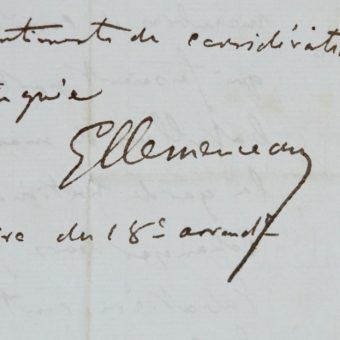 ntiments de considératio
GClemenceau
ire du 18e arrondt